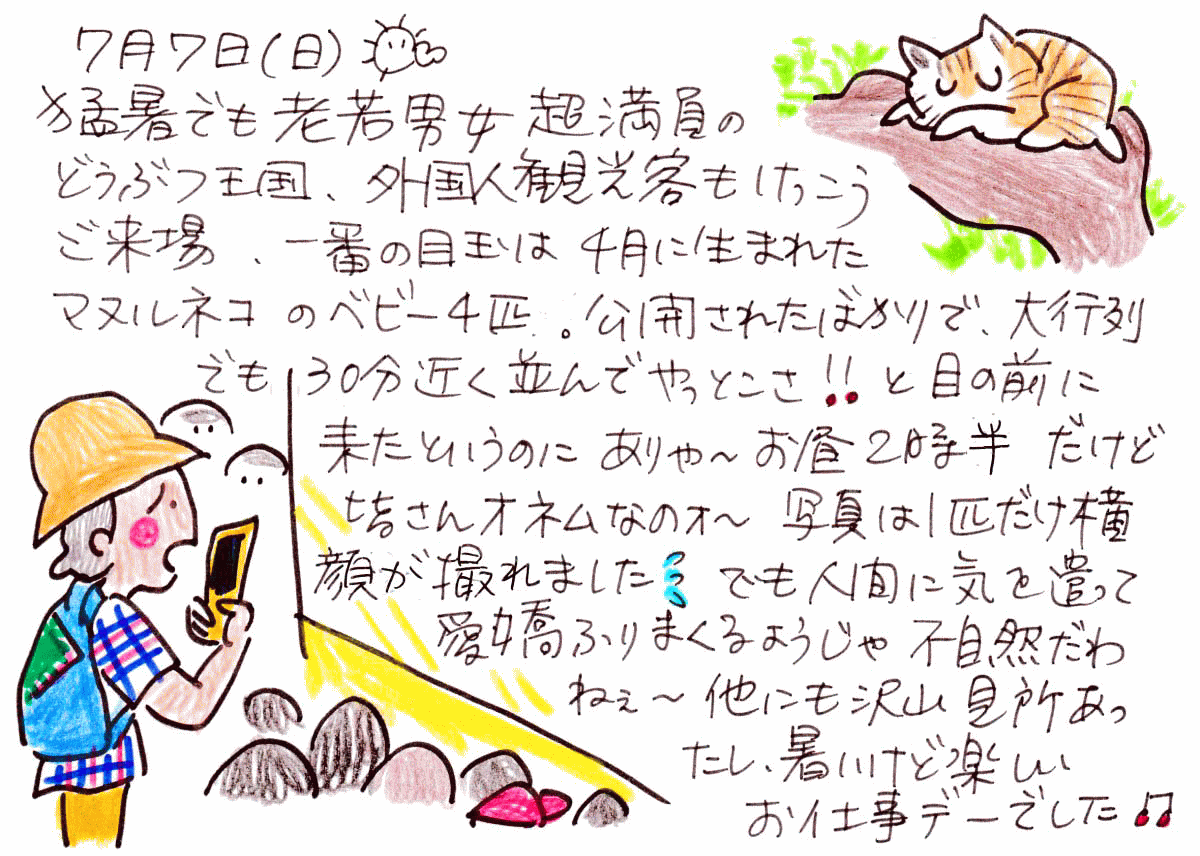 7月7日(日)
猛暑でも老若男女超満員の
どうぶつ王国、外国人観光客もけっこう
ご来場、一番の目玉は4月に生まれた
マヌルネコのベビー4匹。公開されたばかりで、大行列
でも30分近く並んでやっとこさ!!と目の前に
来たというのにありゃ〜お昼2時半だけど
皆さんオネムなのォ〜写真は1匹だけ横
顔が撮れましたでも人間に気を遣って
愛嬌ふりまくるようじゃ不自然だわ
ねぇ〜他にも沢山見所あっ
たし、暑いけど楽しい
お仕事デーでした♫